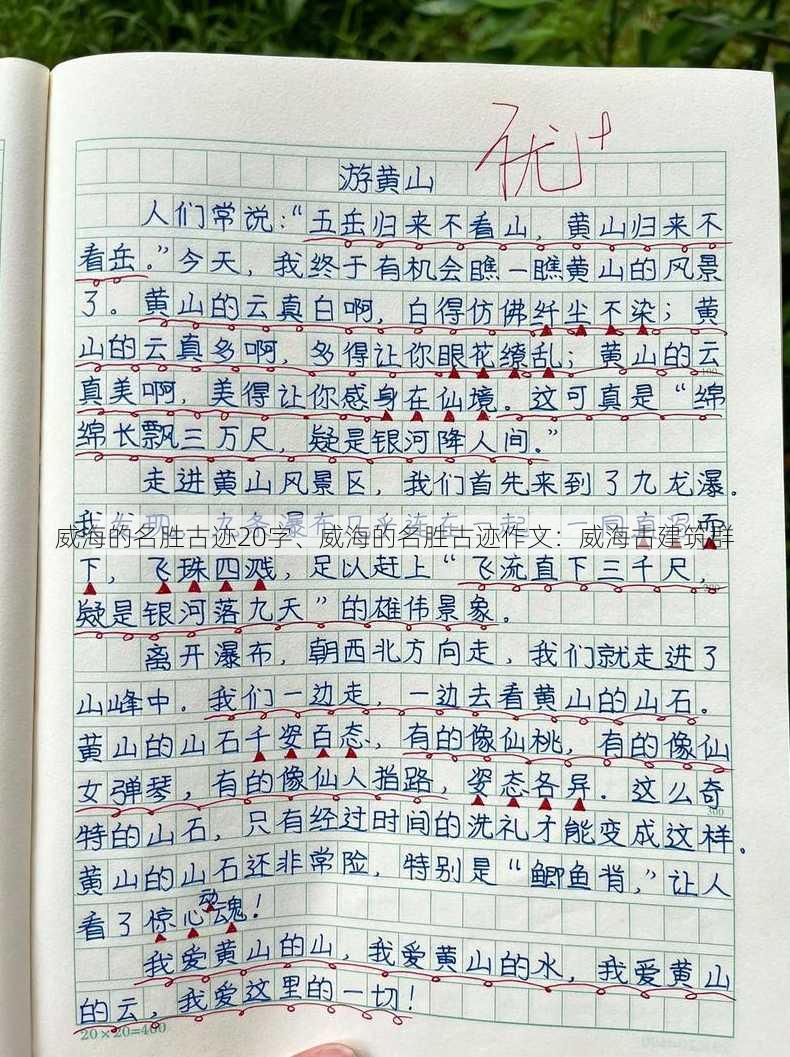 优+
游黄山
人们常说：“五岳归来不看山，黄山归来不
看岳。”今天，我终于有机会瞧一瞧黄山的风景
了。黄山的云真白啊，白得仿佛纤尘不染；黄
山的云真多啊，多得让你眼花缭乱；黄山的云
真美啊，美得让你感身在仙境。这可真是“绵
绵长飘三万尺，疑是银河降人间。”
走进黄山风景区，我们首先来到了九龙瀑。
而
威海的名胜古迹20字、威海的名胜古迹作文：威海古建筑群
下，飞珠四溅，足以赶上“飞流直下三千尺，
疑是银河落九天”的雄伟景象。
离开瀑布，朝西北方向走，我们就走进了
山峰中。我们一边走，一边去看黄山的山石。
黄山的山石千姿百态，有的像仙桃，有的像仙
女弹琴，有的像仙人指路，姿态各异．这么奇
特的山石，只有经过时间的洗礼才能变成这样。
黄山的山石还非常险，特别是“鲫鱼背，”让人
看了惊心动魂！
我爱黄山的山，我爱黄山的水，我爱黄山
的云，我爱这里的一切！
20×20=400